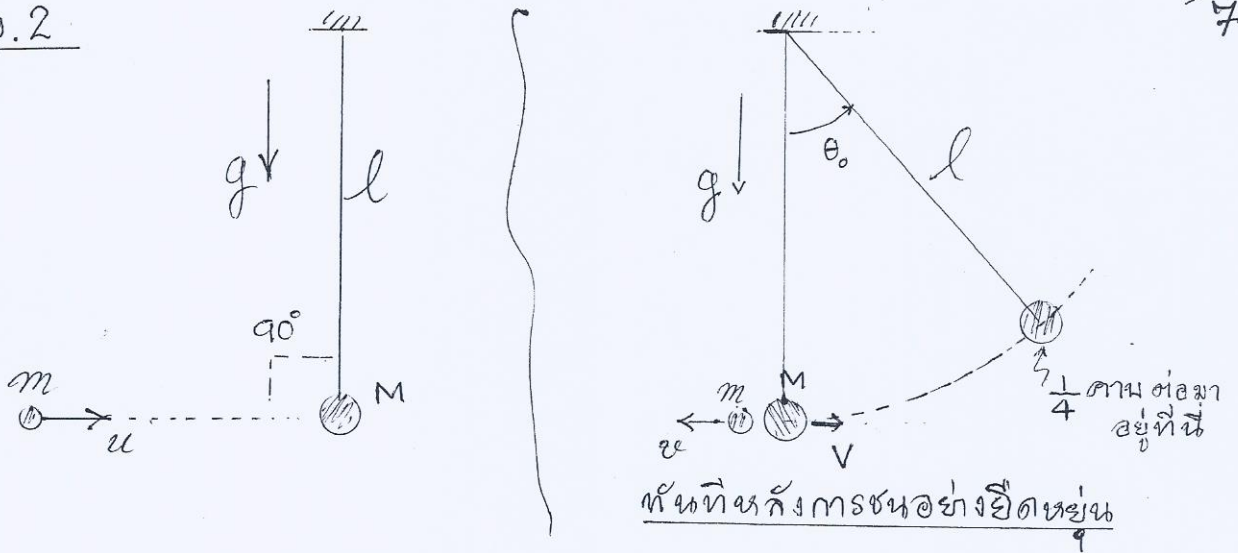 .2
7
g
l
90°
m
u
M
g
θ₀
l
m
M
v
V
1/4 คาบ ต่อมา
อยู่ที่นี่
ทันทีหลังการชนอย่างยืดหยุ่น